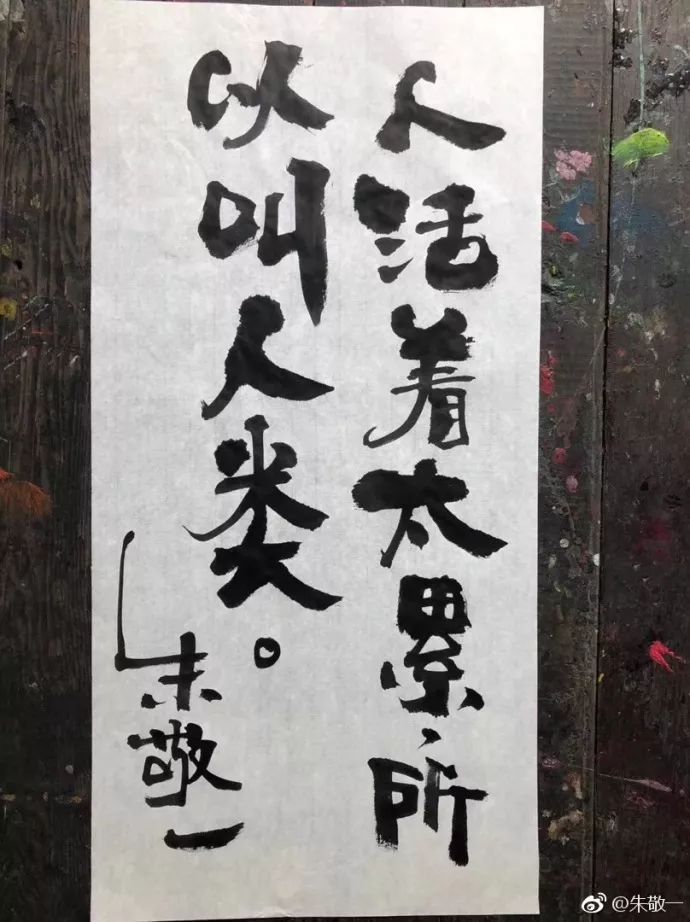 人活着太累、所
以叫人类。
朱敬一
@朱敬一